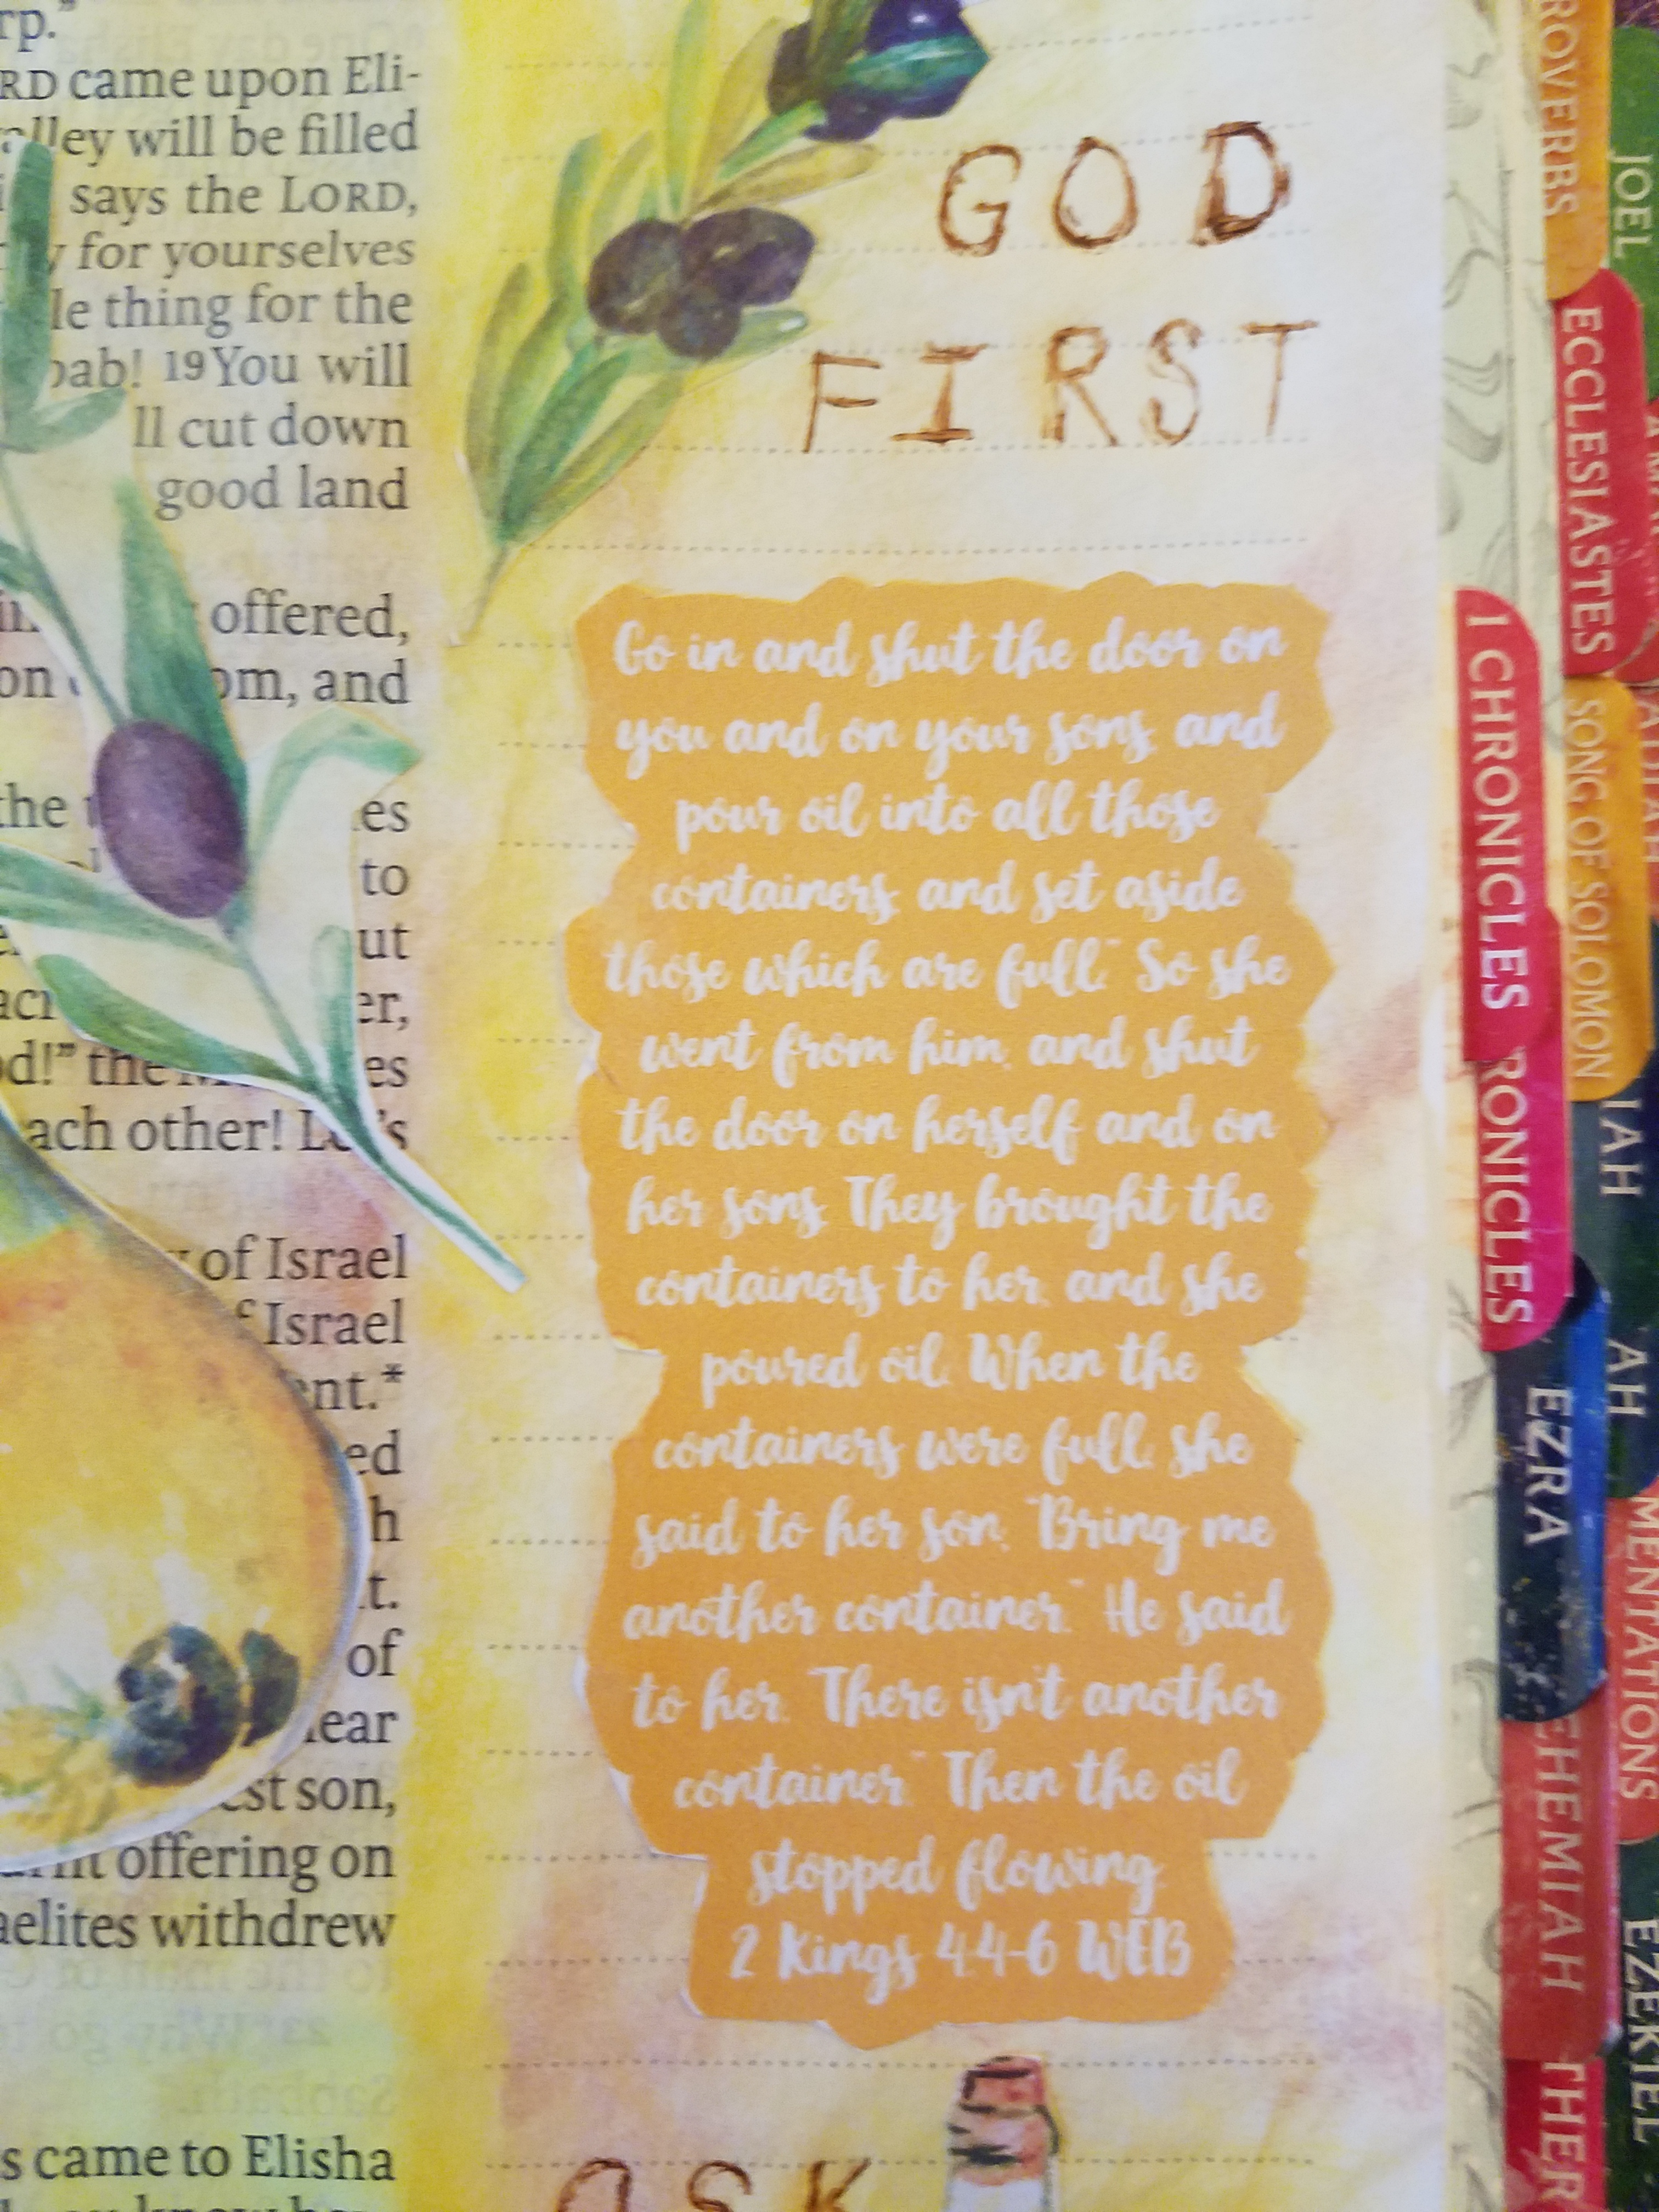 rp."
RD came upon Eli-
alley will be filled
says the LORD,
for yourselves
le thing for the
ab! 19 You will
ll cut down
good land
offered,
on om, and
the es
to
ut
er,
od!" the es
ach other! Let's
of Israel
Israel
ent.*
ed
h
t.
of
ear
est son,
offering on
aelites withdrew
s came to Elisha
GOD
FIRST
Go in and shut the door on
you and on your sons, and
pour oil into all those
containers, and set aside
those which are full." So she
went from him, and shut
the door on herself and on
her sons. They brought the
containers to her, and she
poured oil. When the
containers were full, she
said to her son, "Bring me
another container." He said
to her, "There isn't another
container." Then the oil
stopped flowing.
2 Kings 4:4-6 WEB
ASK
ROVERBS
JOEL
ECCLESIASTES
I CHRONICLES
SONG OF SOLOMON
RONICLES
IAH
AH
EZRA
MENTATIONS
EHEMIAH
EZEKIEL
THER